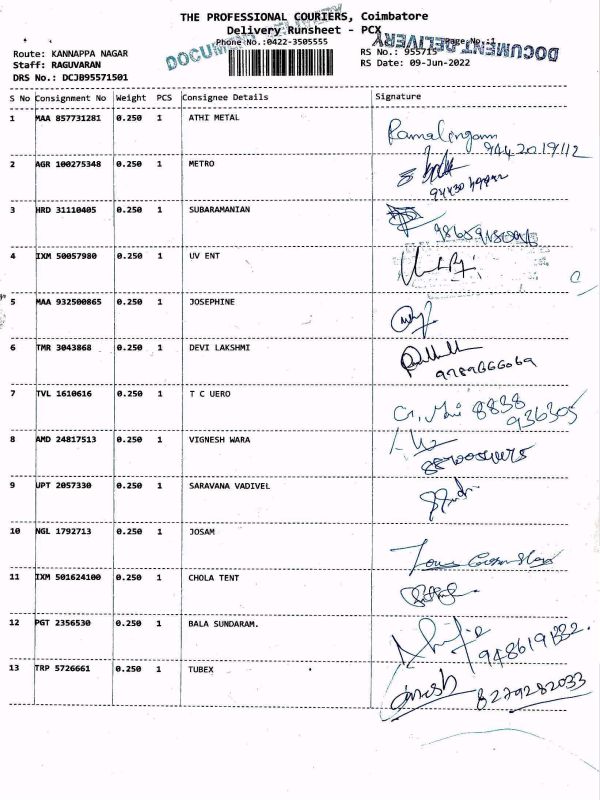 THE PROFESSIONAL COURIERS, Coimbatore
Delivery Runsheet - PCX
Phone No.:0422-3505555
Page No.:1
DOCUMENT DELIVERY
DOCUMENT DELIVERY
Route: KANNAPPA NAGAR
RS No.: 955715
Staff: RAGUVARAN
RS Date: 09-Jun-2022
DRS No.: DCJB95571501
S No Consignment No Weight PCS Consignee Details Signature
1 MAA 857731281 0.250 1 ATHI METAL
Ramalingam
944 2019112
2 AGR 100275348 0.250 1 METRO
3 HRD 31110405 0.250 1 SUBARAMANIAN
4 IXM 50057980 0.250 1 UV ENT
5 MAA 932500865 0.250 1 JOSEPHINE
6 TMR 3043868 0.250 1 DEVI LAKSHMI
9789666069
7 TVL 1610616 0.250 1 T C UERO
8838
936305
8 AMD 24817513 0.250 1 VIGNESH WARA
9 UPT 2057330 0.250 1 SARAVANA VADIVEL
10 NGL 1792713 0.250 1 JOSAM
11 IXM 501624100 0.250 1 CHOLA TENT
12 PGT 2356530 0.250 1 BALA SUNDARAM.
13 TRP 5726661 0.250 1 TUBEX
8279282033